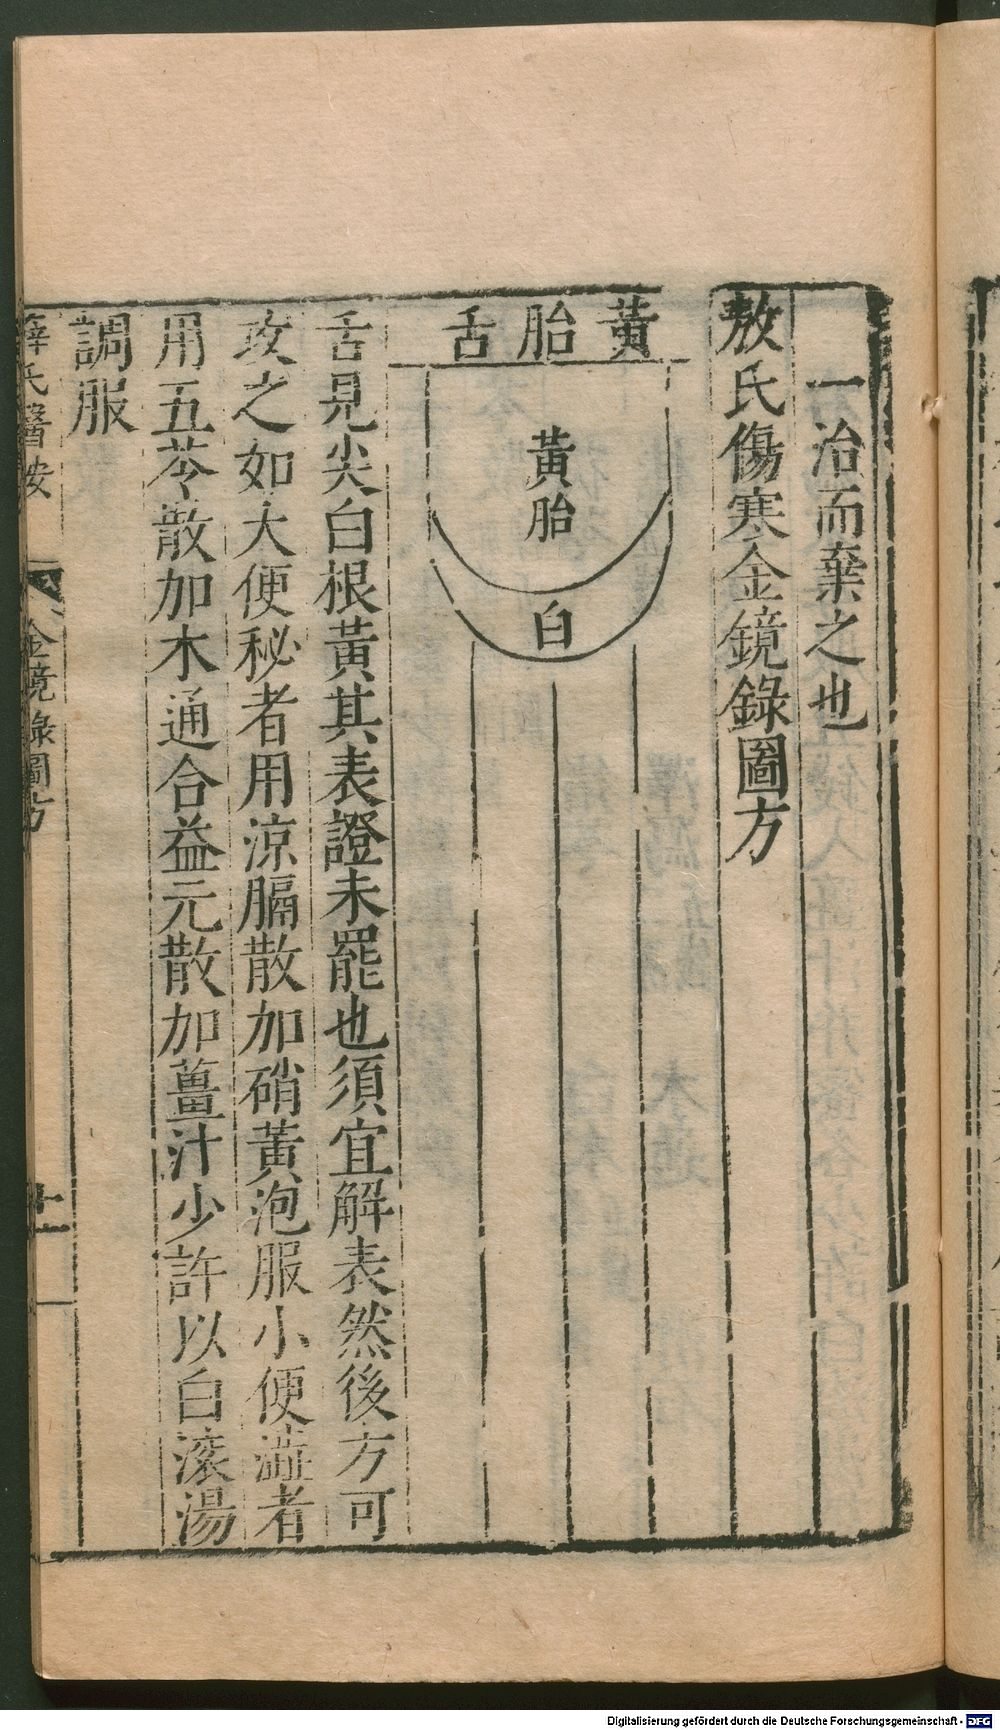 一治而棄之也
敖氏傷寒金鏡錄圖方
黃胎舌
黃胎
白
舌見尖白根黃其表證未罷也須宜解表然後方可
攻之如大便秘者用涼膈散加硝黃泡服小便澁者
用五苓散加木通合益元散加薑汁少許以白滚湯
調服
薛氏醫按 金鏡錄圖方 十一
Digitalisierung gefördert durch die Deutsche Forschungsgemeinschaft - DFG